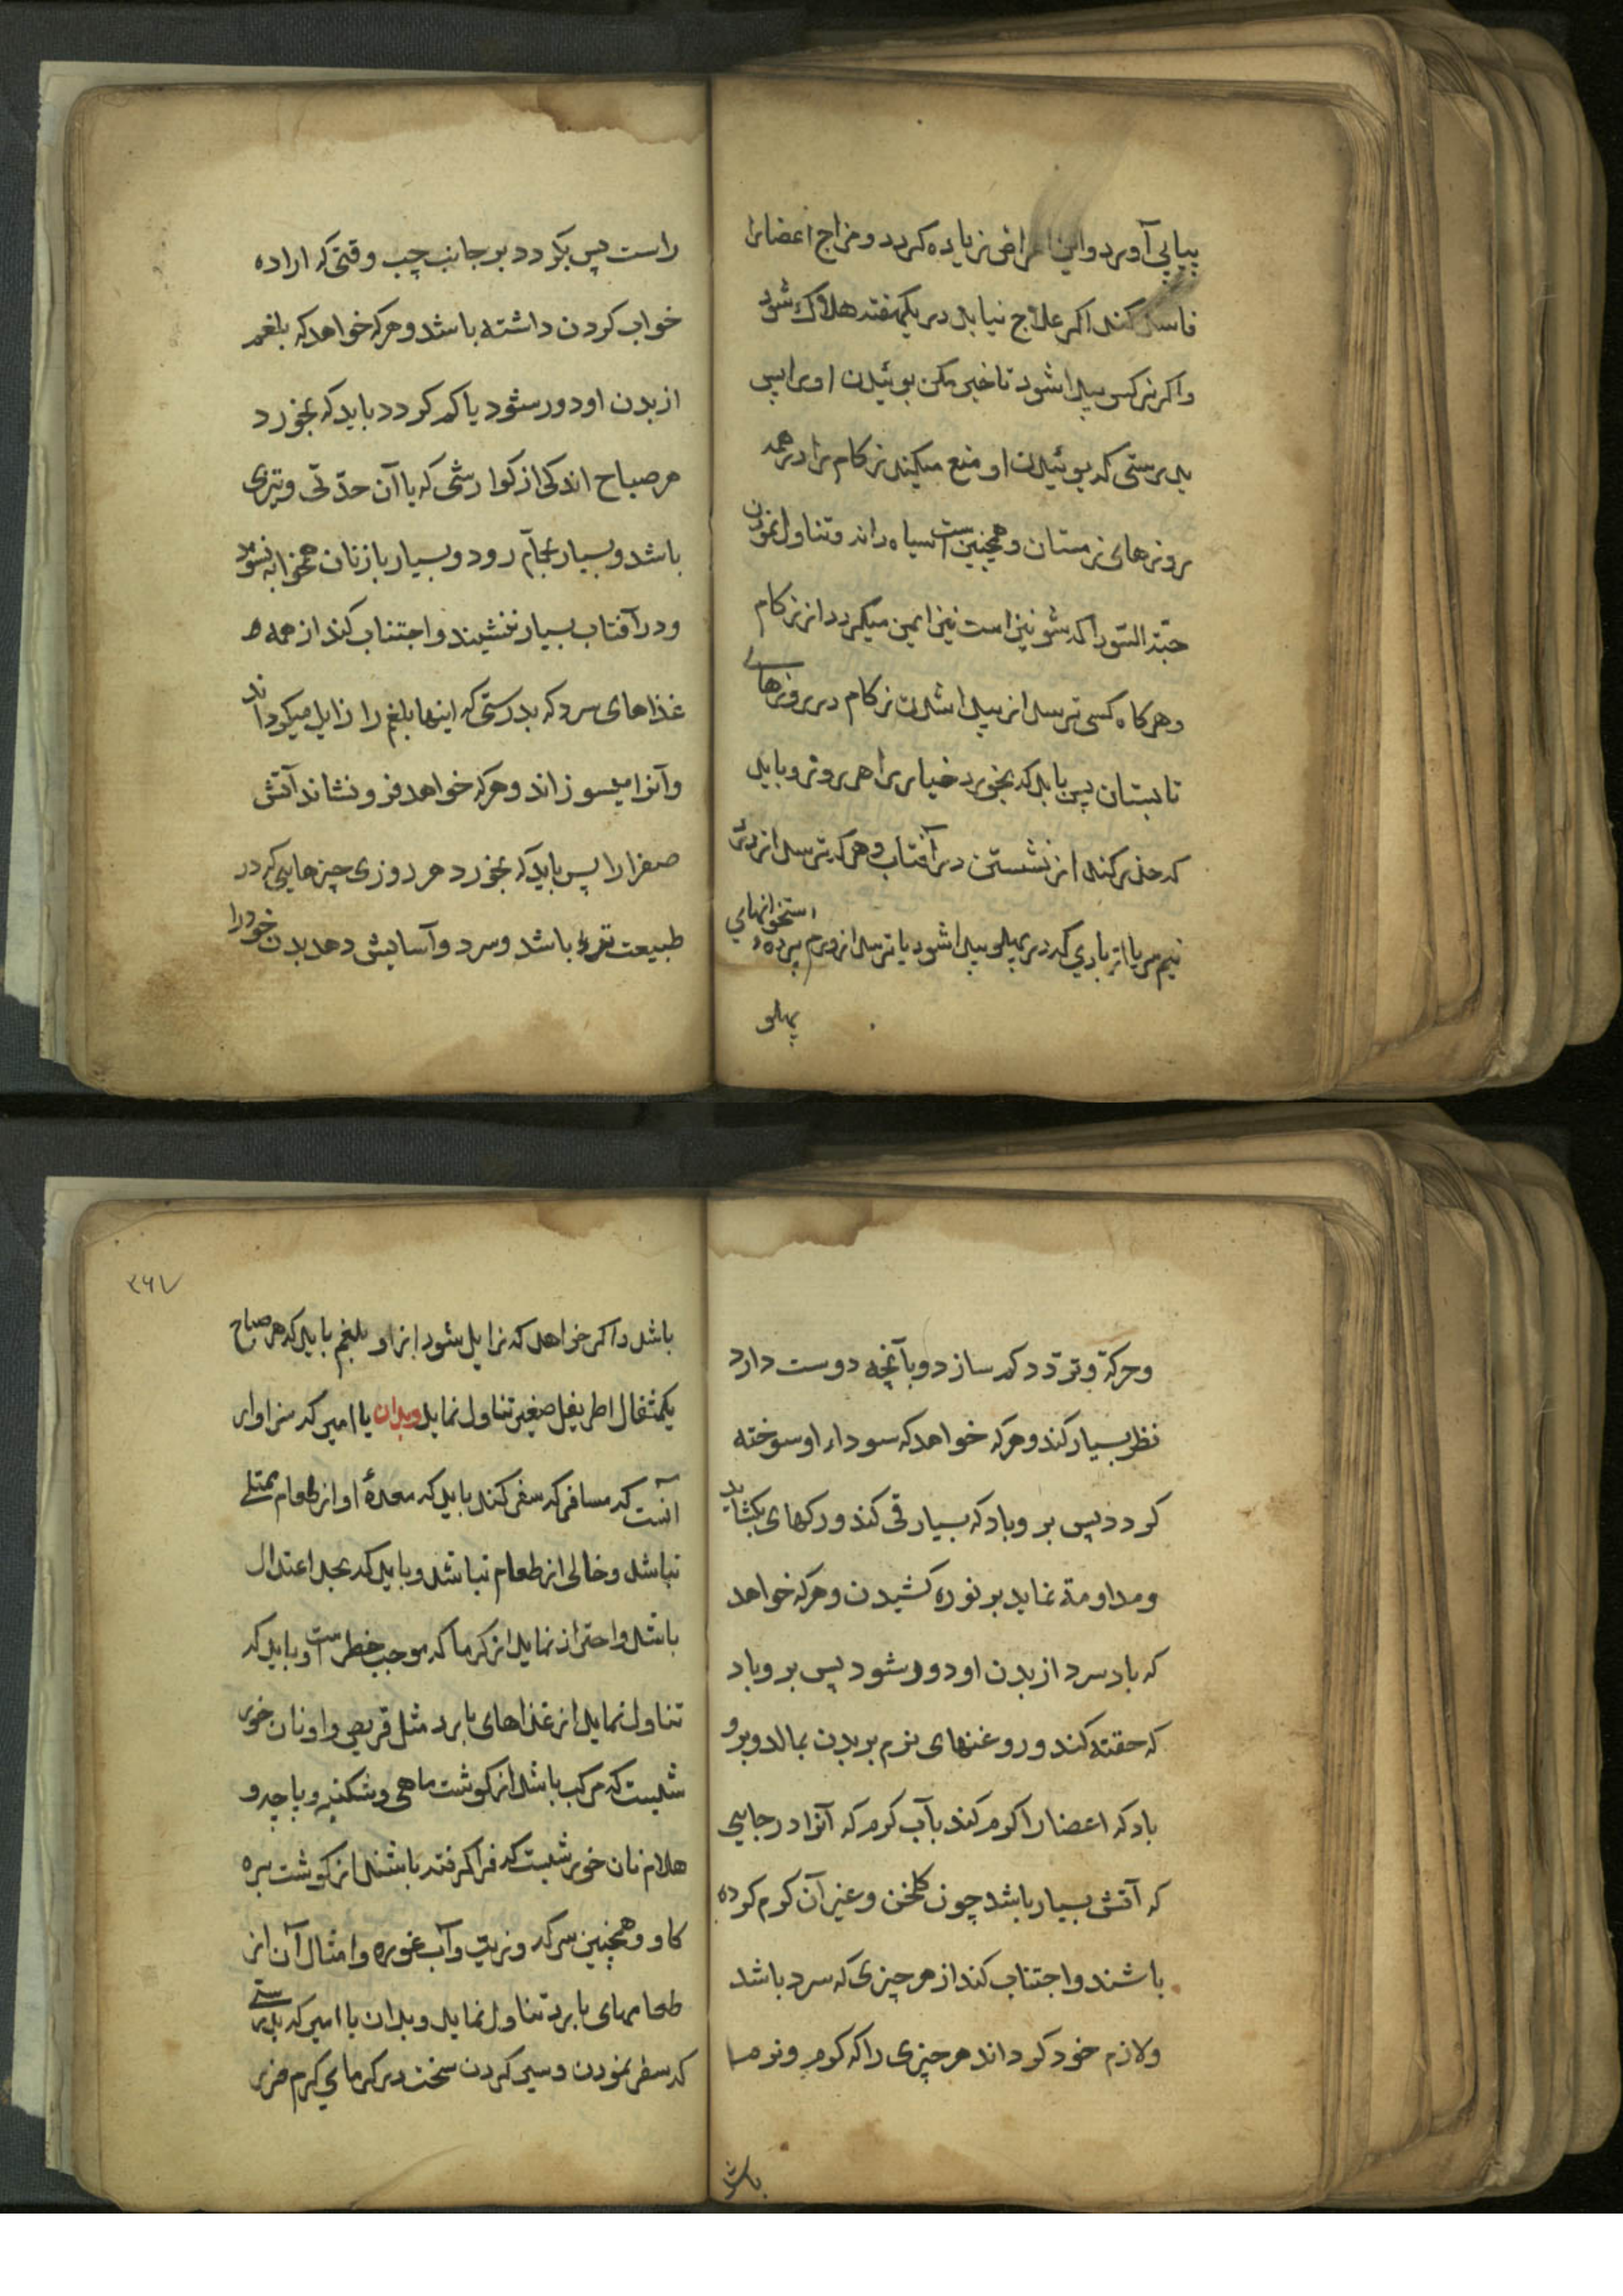 پیاپی آورد و این امراض زیاده کردد و مزاج اعضا را
فاسد کند اکر علاج نیابد در یکهفته هلاک شود
و اکر نرکس پیدا شود تاخیر مکن بوئیدن او را پس
بدرستی که بوئیدن او منع میکند زکام را در همه
روزهای زمستان و همچنین است سیاه دانه و تناول نمودن
حبّة السّودا که شونیز است نیز ایمن میکردد از زکام
و هرکاه کسی ترسد از پیدا شدن زکام در روزهای
تابستان پس باید که بخورد خیار را هر روز و باید
که حذر کند از نشستن در آفتاب و هرکه ترسد از درد
نیم سر یا از بادی که در پهلو پیدا شود یا ترسد از ورم پرده استخوانهای
پهلو
راست پس بکردد بر جانب چپ وقتی که اراده
خواب کردن داشته باشد و هرکه خواهد که بلغم
از بدن او دور شود یا کم کردد باید که بخورد
هر صباح اندکی از کوارشی که با آن حدّتی و تیزی
باشد و بسیار بحمّام رود و بسیار با زنان همخوابه شود
و در آفتاب بسیار ننشیند و اجتناب کند از همه
غذاهای سرد که بدرستی که اینها بلغم را زایل میکرداند
و آنرا میسوزاند و هرکه خواهد فرو نشاند آتش
صفرا را پس باید که بخورد هر روزی چیزهایی که در
طبیعت تر باشد و سرد و آسایش دهد بدن خود را
و حرکة و تردّد کم سازد و بآنچه دوست دارد
نظر بسیار کند و هرکه خواهد که سوداء او سوخته
کردد پس بر و باد که بسیار قی کند و رکهای بکشاید
و مداومة نماید بر نوره کشیدن و هرکه خواهد
که باد سرد از بدن او دور شود پس بر و باد
که حقنه کند و روغنهای نرم بر بدن بمالد و بر و
باد که اعضا را کرم کند بآب کرم که آنرا در جایی
که آتش بسیار باشد چون کلخن و غیر آن کرم کرده
باشند و اجتناب کند از هر چیزی که سرد باشد
و لازم خود کرداند هر چیزی را که کرم و نرم
باشد
۲۶۷
باشد و اکر خواهد که زایل شود از او بلغم باید که هر صباح
یکمثقال اطریفل صغیر تناول نماید و بدان یا امیر که سزاوار
آنست که مسافر که سفر کند باید که معدۀ او از طعام ممتلی
نباشد و خالی از طعام نباشد و باید که بحد اعتدال
باشد و احتراز نماید از کرما که موجب خطر است و باید که
تناول نماید از غذاهای بارد مثل قریص و او نان خور
شیست که مرکب باشد از کوشت ماهی و شکنبه و پاچه و
هلام نان خور شیست که فرا کرفته باشند از کوشت بره
کاو و همچنین سرکه و زیت و آب غوره و امثال آن از
طعامهای بارد تناول نماید و بدان یا امیر که بدرستی
که سفر نمودن و سیر کردن سخت در کرمای کرم ضرر